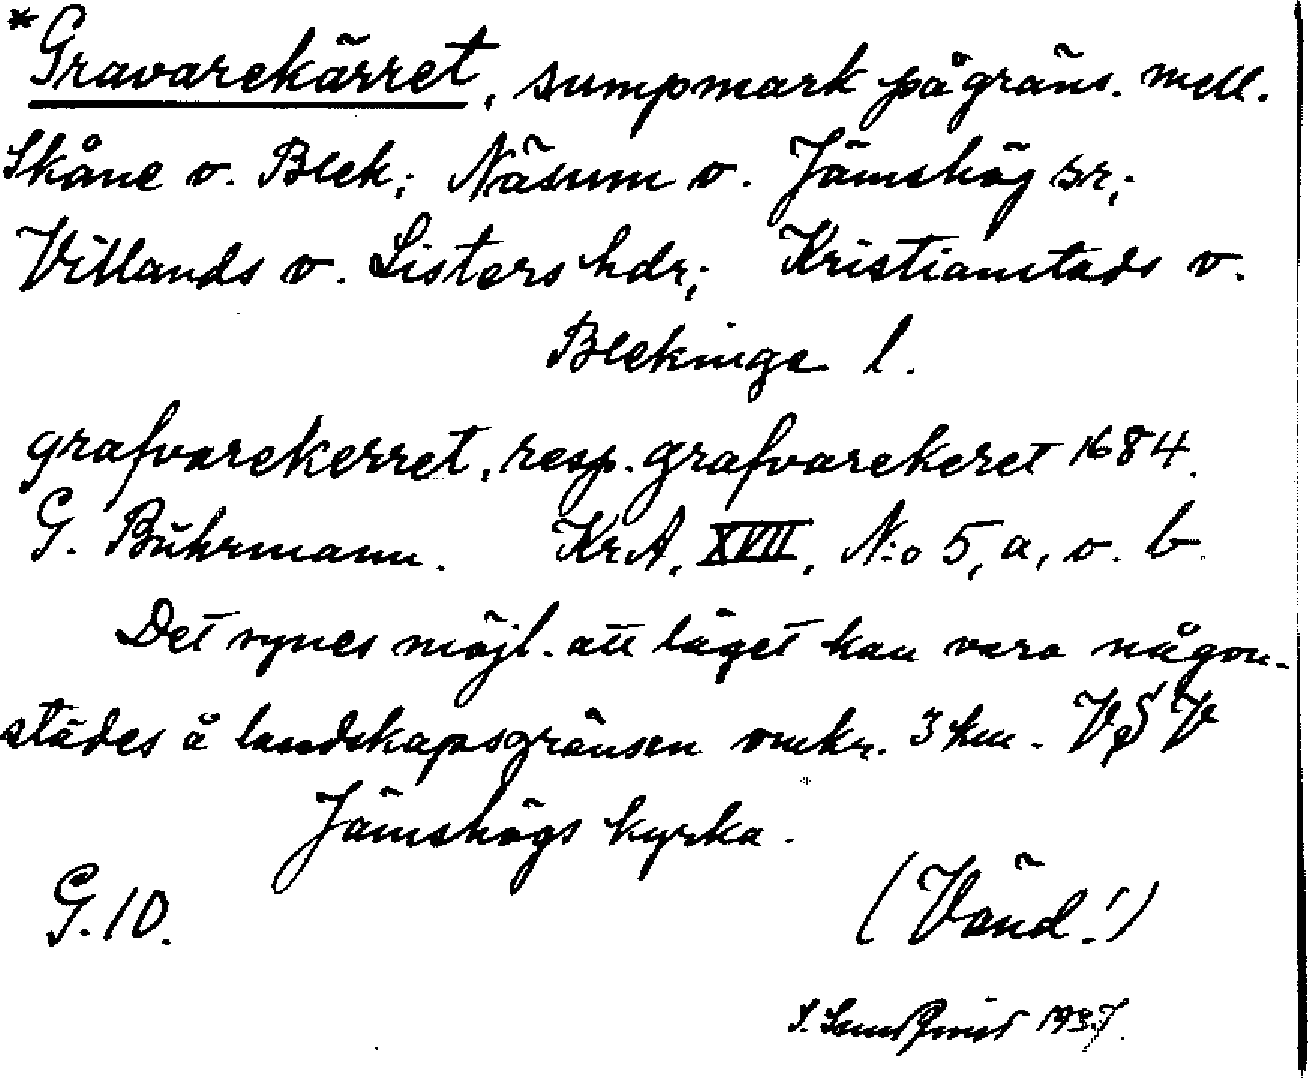 *Gravarekärret, sumpmark på gräns. mell.
Skåne o. Blek; Näsum o. Jämshög sr;
Villands o. Listers hdr; Kristianstads o.
Blekinge l.
grafvarekerret, resp. grafvarekeret 1684.
G. Buhrmann. KrA, XVII, N:o 5, a, o. b.
Det synes möjl. att läget kan vara någon-
städes å landskapsgränsen omkr. 3 km. VSV
Jämshögs kyrka.
G.10. (Vänd!)
S. Sundquist 1937.